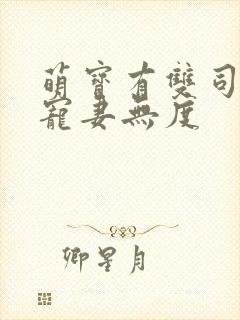 萌寶有雙司
寵妻無度
卿星月